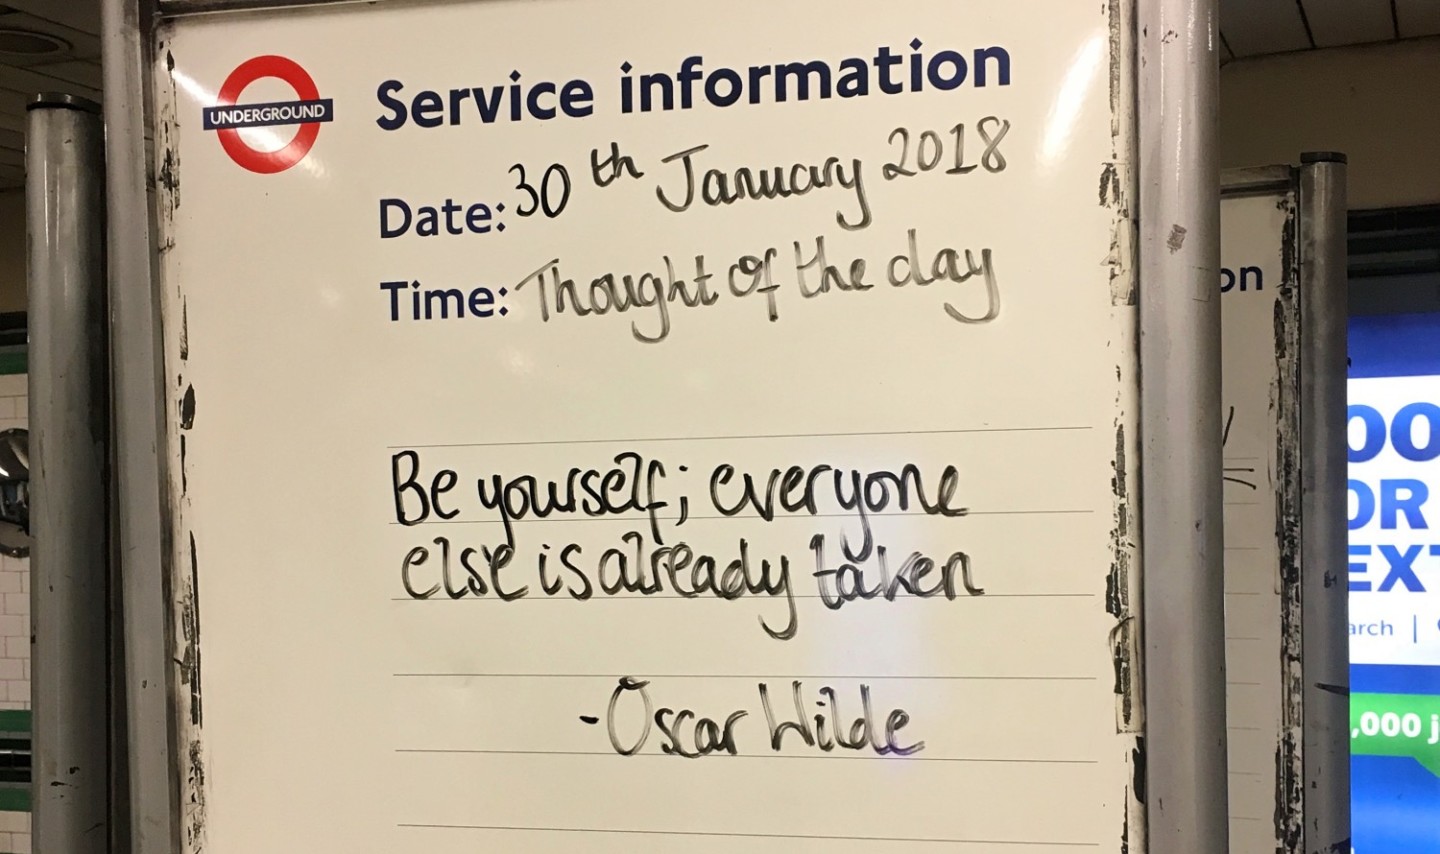 UNDERGROUND
Service information
Date: 30th January 2018
Time: Thought of the day
Be yourself; everyone
else is already taken
- Oscar Wilde
on
OR
arch |
,000 j